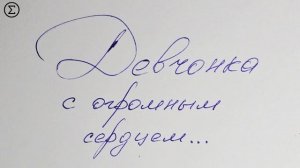 Σ
Девчонка
с огромным
сердцем...